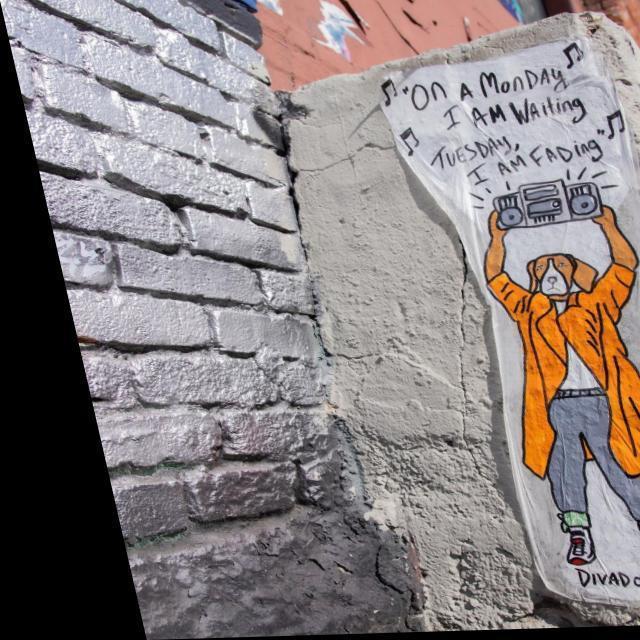 "ON A MONDAY
I AM WAITING
TUESDAY,
I AM FADING"